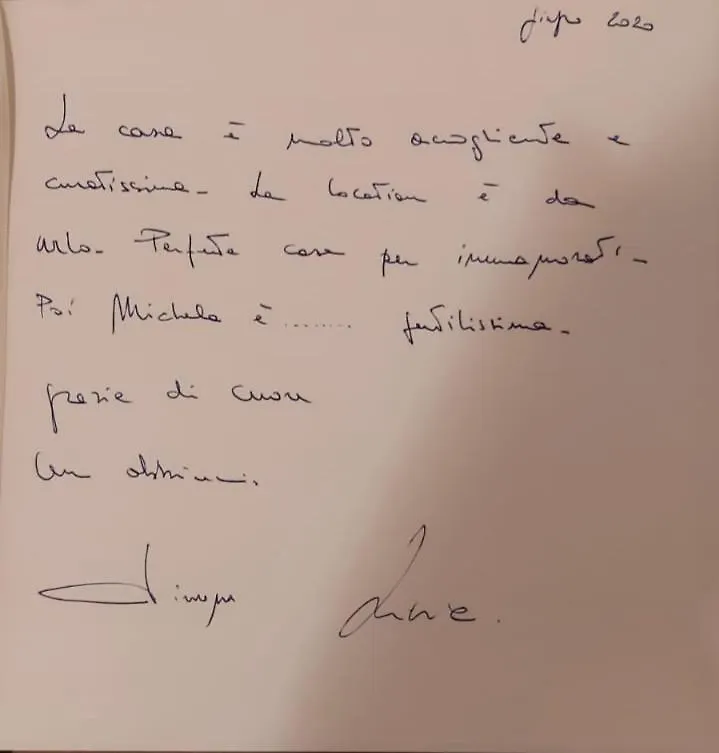 giugno 2020
La casa è molto accogliente e
curatissima - La location è da
urlo - Perfetta casa per innamorati -
Poi Michela è ........ gentilissima -
grazie di cuore